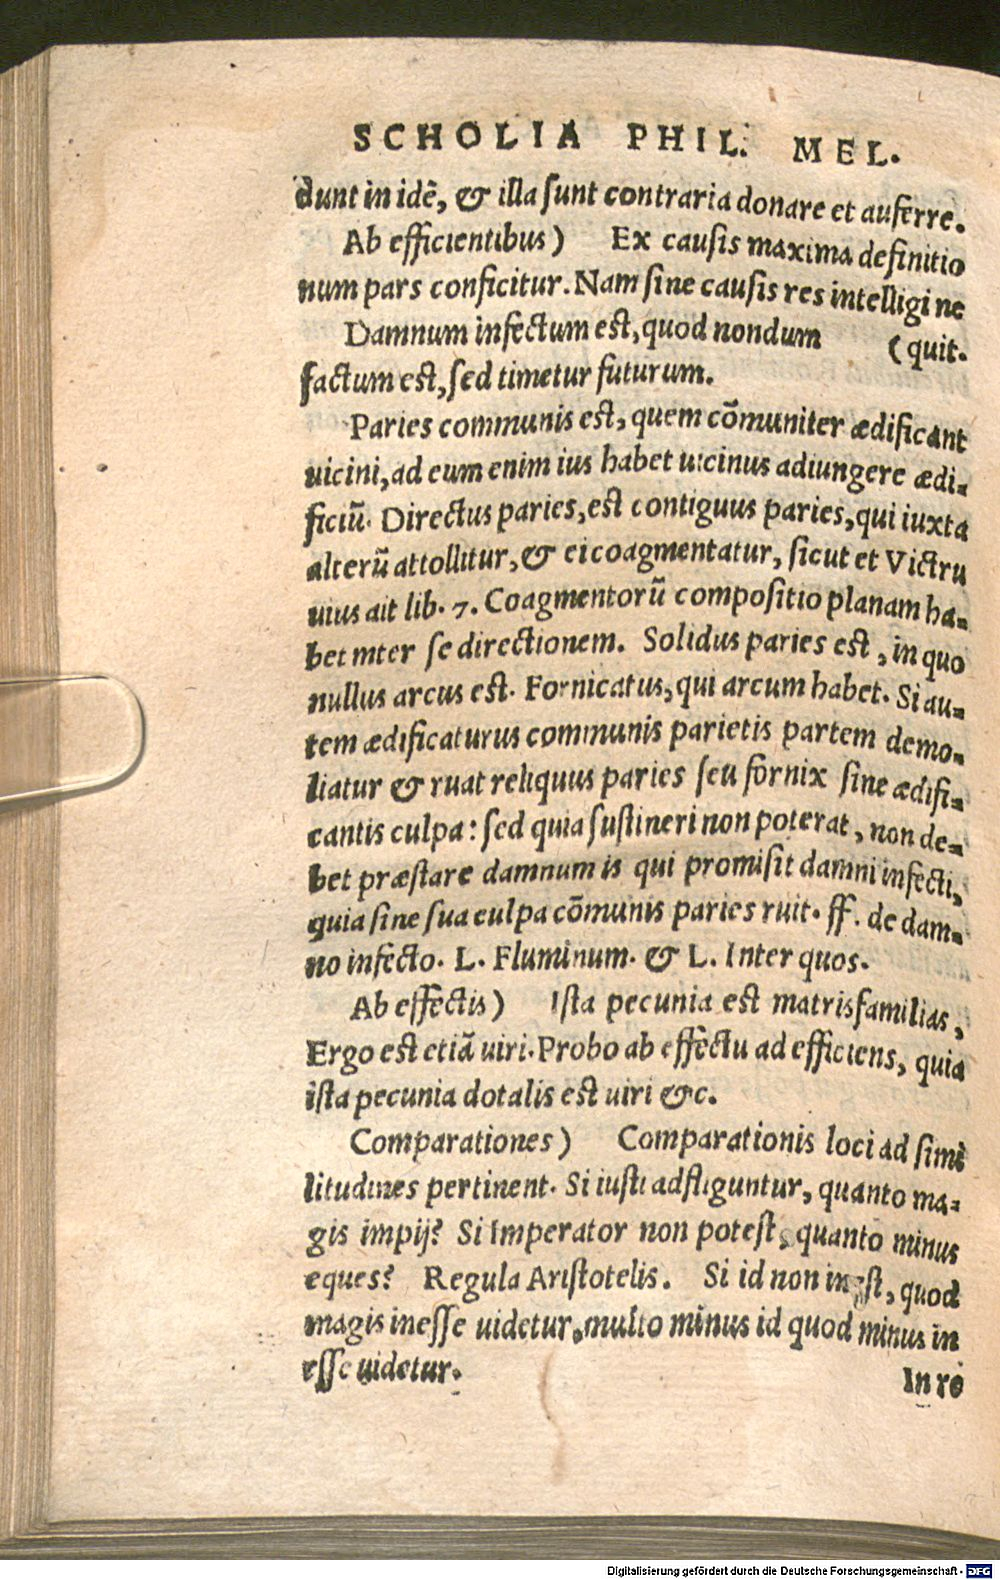 SCHOLIA PHIL. MEL.
dunt in idẽ, & illa sunt contraria donare et auferre.
Ab efficientibus) Ex causis maxima definitio
num pars conficitur. Nam sine causis res intelligi ne
Damnum infectum est, quod nondum (quit.
factum est, sed timetur futurum.
Paries communis est, quem cõmuniter ædificant
uicini, ad eum enim ius habet uicinus adiungere ædi-
ficiũ. Directus paries, est contiguus paries, qui iuxta
alterũ attollitur, & ei coagmentatur, sicut et Victru
uius ait lib. 7. Coagmentorũ compositio planam ha-
bet inter se directionem. Solidus paries est, in quo
nullus arcus est. Fornicatus, qui arcum habet. Si au-
tem ædificaturus communis parietis partem demo-
liatur & ruat reliquus paries seu fornix sine ædifi-
cantis culpa: sed quia sustineri non poterat, non de-
bet præstare damnum is qui promisit damni infecti,
quia sine sua culpa cõmunis paries ruit. ff. de dam-
no infecto. L. Fluminum. & L. Inter quos.
Ab effectis) Ista pecunia est matrisfamilias,
Ergo est etiã uiri. Probo ab effectu ad efficiens, quia
ista pecunia dotalis est uiri &c.
Comparationes) Comparationis loci ad simi
litudines pertinent. Si iusti adfliguntur, quanto ma-
gis impij? Si Imperator non potest, quanto minus
eques? Regula Aristotelis. Si id non inest, quod
magis inesse uidetur, multo minus id quod minus in
esse uidetur.
In re
Digitalisierung gefördert durch die Deutsche Forschungsgemeinschaft - DFG